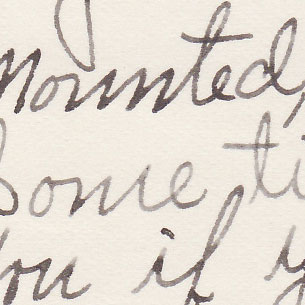 mounted,
some ti
you if y